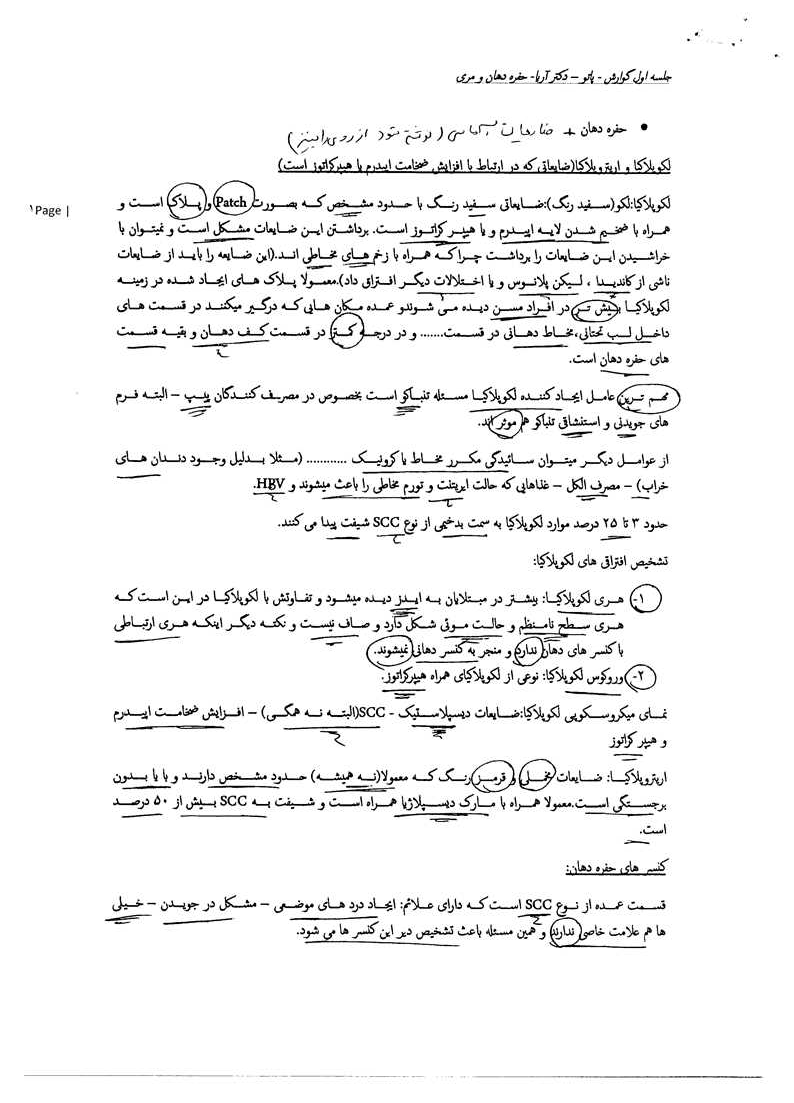 جلسه اول گوارش - پاتو – دکتر آریا- حفره دهان و مری
• حفره دهان + ضایعات آماسی (نوشته شود از روی رابینز)
لکوپلاکا و اریتروپلاکا(ضایعاتی که در ارتباط با افزایش ضخامت اپیدرم یا هیپرکراتوز است)
لکوپلاکیا:لکو(سفید رنگ):ضایعاتی سفید رنگ با حدود مشخص که بصورت Patch و پلاک است و
همراه با ضخیم شدن لایه اپیدرم و یا هیپر کراتوز است. برداشتن این ضایعات مشکل است و نمیتوان با
خراشیدن این ضایعات را برداشت چرا که همراه با زخم های مخاطی اند.(این ضایعه را باید از ضایعات
ناشی از کاندیدا ، لیکن پلانوس و یا اختلالات دیگر افتراق داد).معمولا پلاک های ایجاد شده در زمینه
لکوپلاکیا بیش تر در افراد مسن دیده می شوندو عمده مکان هایی که درگیر میکنند در قسمت های
داخل لب تحتانی،مخاط دهانی در قسمت....... و در درجه کمتر در قسمت کف دهان و بقیه قسمت
های حفره دهان است.
1Page |
مهم ترین عامل ایجاد کننده لکوپلاکیا مسئله تنباکو است بخصوص در مصرف کنندگان پیپ – البته فرم
های جویدنی و استنشاقی تنباکو هم موثر اند.
از عوامل دیگر میتوان سائیدگی مکرر مخاط یا کرونیک ............ (مثلا بدلیل وجود دندان های
خراب) – مصرف الکل – غذاهایی که حالت ایریتنت و تورم مخاطی را باعث میشوند و HBV.
حدود ۳ تا ۲۵ درصد موارد لکوپلاکیا به سمت بدخیمی از نوع SCC شیفت پیدا می کنند.
تشخیص افتراقی های لکوپلاکیا:
۱- هری لکوپلاکیا: بیشتر در مبتلایان به ایدز دیده میشود و تفاوتش با لکوپلاکیا در این است که
هری سطح نامنظم و حالت موئی شکل دارد و صاف نیست و نکته دیگر اینکه هری ارتباطی
با کنسر های دهان ندارد و منجر به کنسر دهانی نمیشوند.
۲- وروکوس لکوپلاکیا: نوعی از لکوپلاکیای همراه هیپرکراتوز.
نمای میکروسکوپی لکوپلاکیا:ضایعات دیسپلاستیک - SCC(البته نه همگی) – افزایش ضخامت اپیدرم
و هیپر کراتوز
اریتروپلاکیا: ضایعات مخملی و قرمز رنگ که معمولا(نه همیشه) حدود مشخص دارند و با یا بدون
برجستگی است.معمولا همراه با مارک دیسپلاژیا همراه است و شیفت به SCC بیش از ۵۰ درصد
است.
کنسر های حفره دهان:
قسمت عمده از نوع SCC است که دارای علائم: ایجاد درد های موضعی – مشکل در جویدن – خیلی
ها هم علامت خاصی ندارند و همین مسئله باعث تشخیص دیر این کنسر ها می شود.